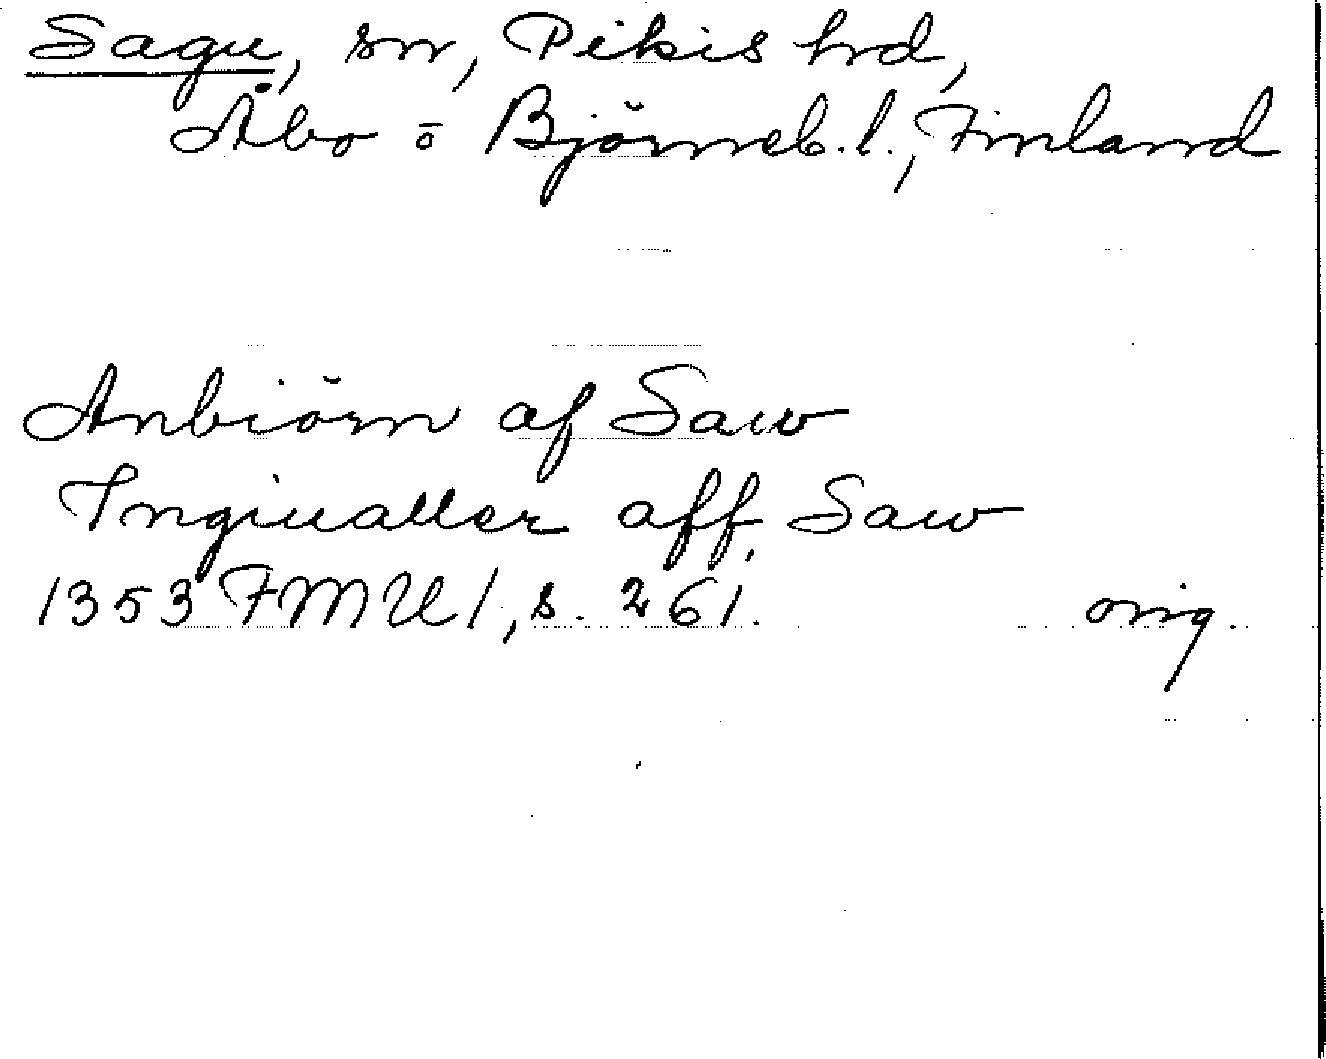 Sagu, sn, Pikis hrd,
Åbo o Björneb. l., Finland
Anbiörn af Saw
Ingiualler aff Saw
1353 FMU 1, s. 261. orig.